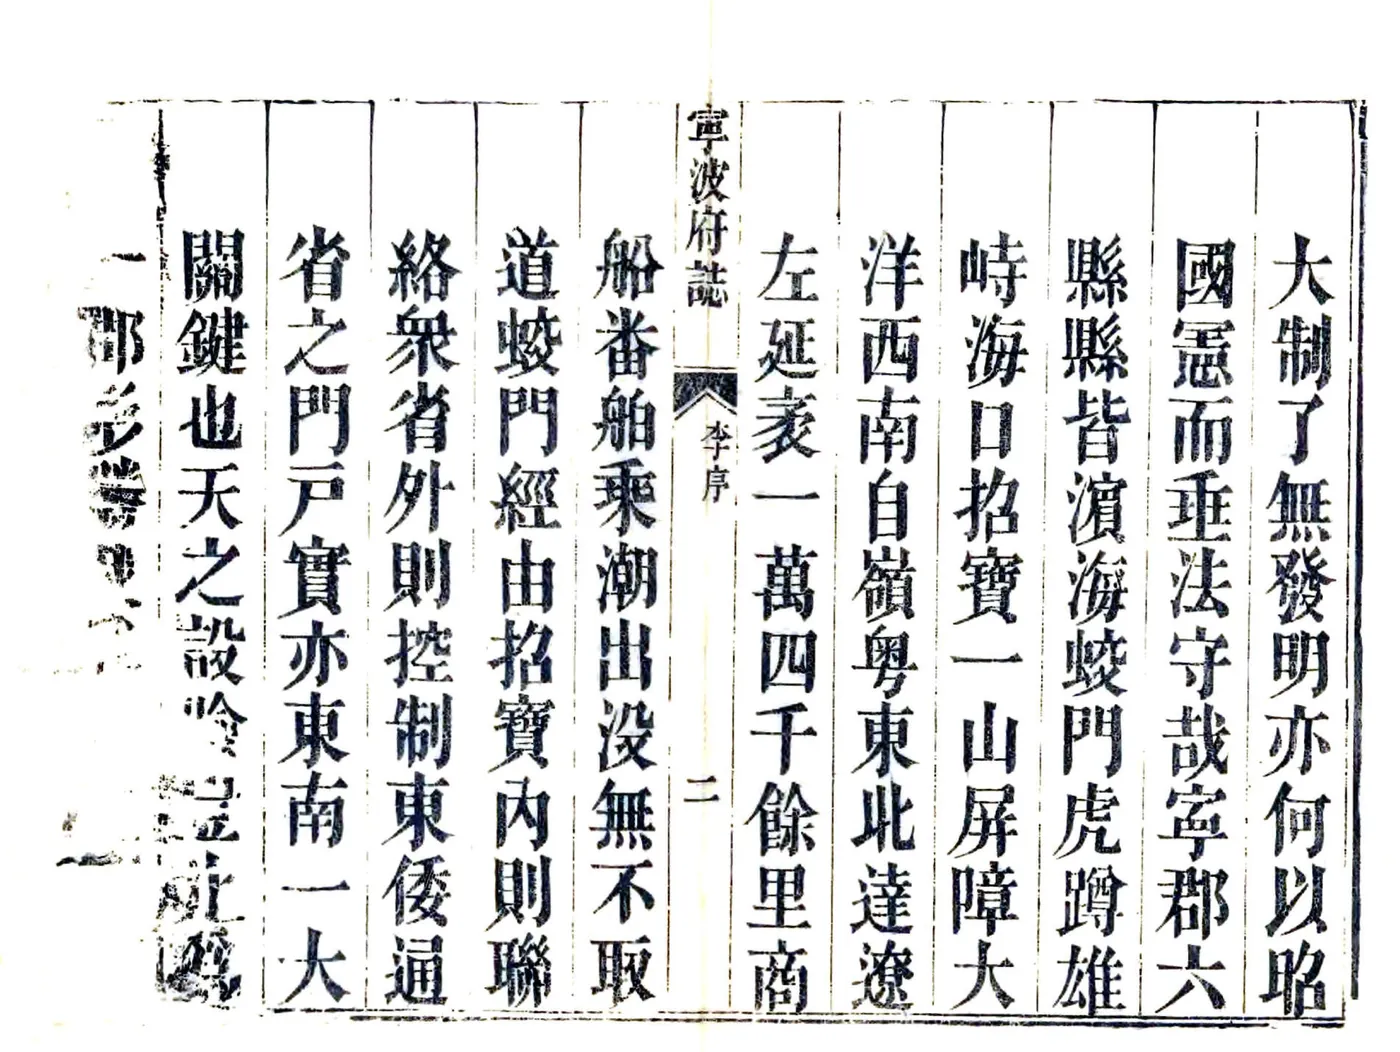 大制了無發明亦何以昭
國憲而垂法守哉寧郡六
縣縣皆濱海蛟門虎蹲雄
峙海口招寶一山屏障大
洋西南自嶺粤東北達遼
左延袤一萬四千餘里商
寧波府誌
李序
二
船番舶乘潮出没無不取
道蛟門經由招寶内則聯
絡衆省外則控制東倭通
省之門戸實亦東南一大
關鍵也天之設險
郡形勝